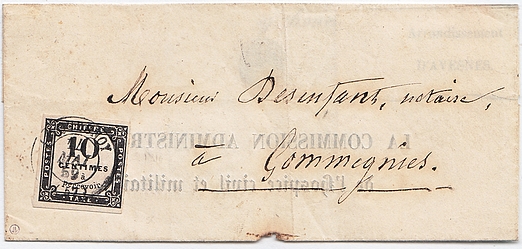 Arrondissement
D'AVESNES
Monsieur Desenfant, notaire,
LA COMMISSION ADMINISTR
à Gommegnies.
de l'Hospice civil et militai
CHIFFRE
POSTES
10
CENTIMES
à percevoir
TAXE